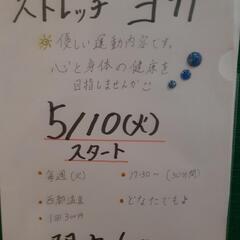 ストレッチ ヨガ
※優しい運動内容です。
心と身体の健康を
目指しませんか
5/10(火)
スタート
・毎週(火)
・17:30〜(30分間)
・西都温泉
・どなたでも
1回300円